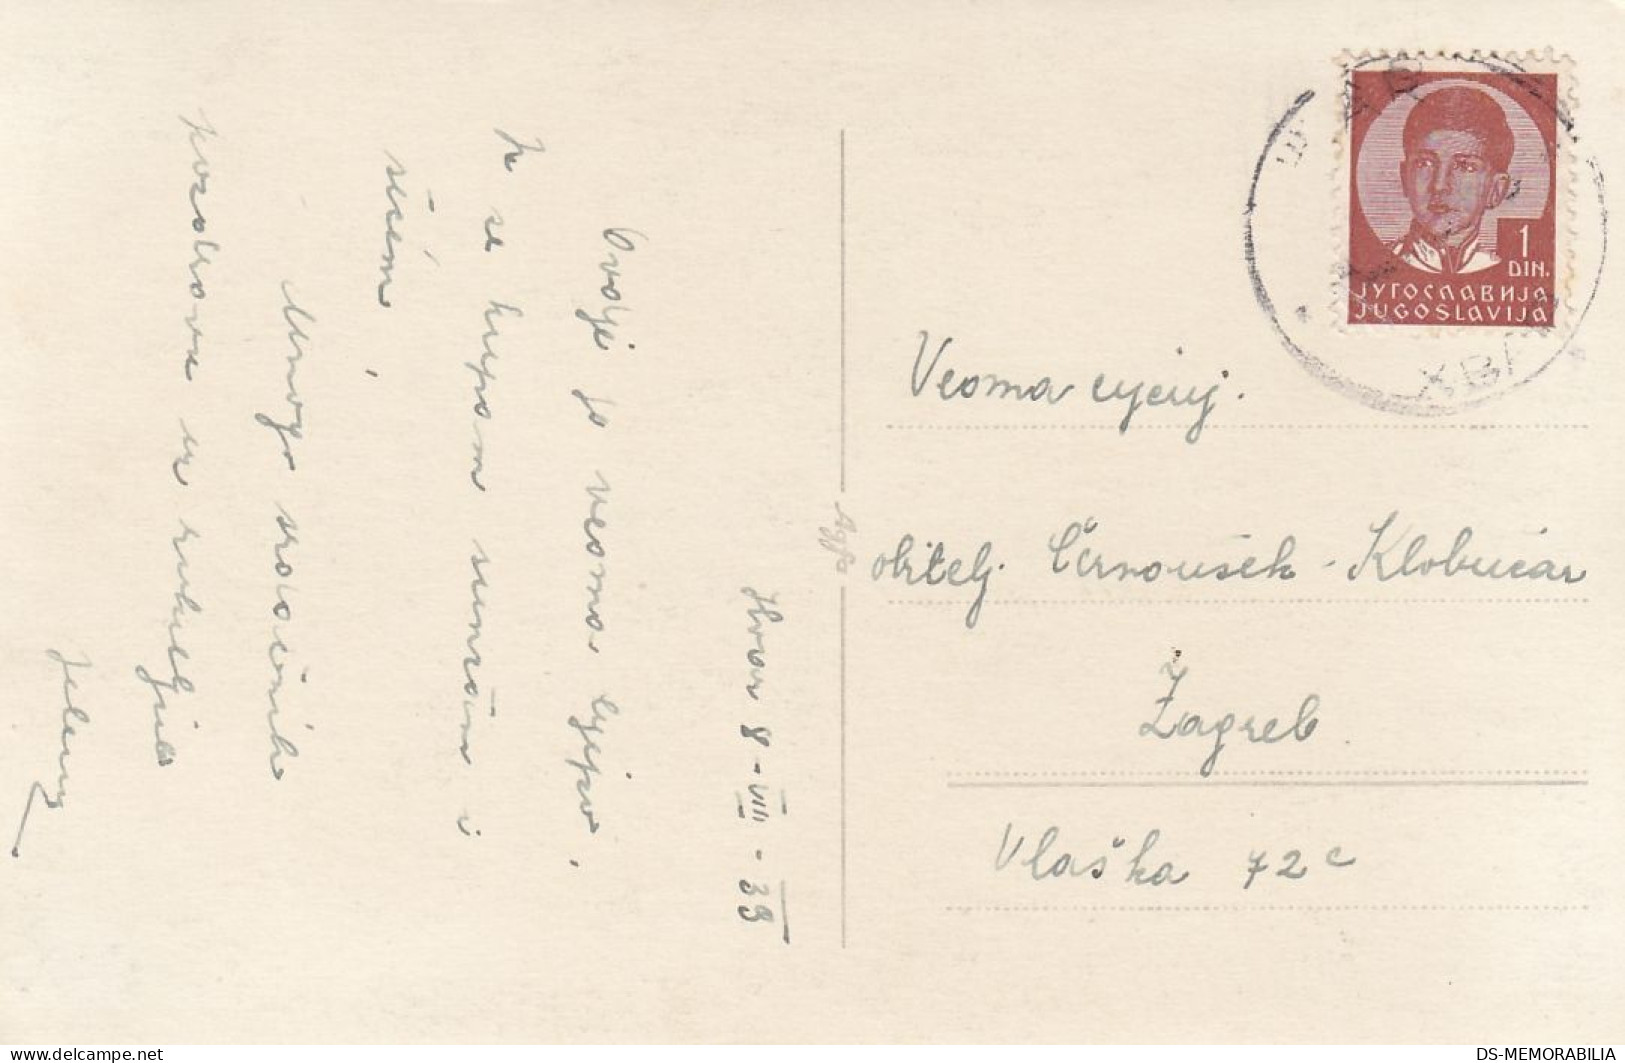 Hvar 8-VIII-39
Ovdje je veoma lijepo,
se kupam sunčam i
Mnogo srdačnih
pozdrava
Jeleny
Agfa
1
DIN.
ЈУГОСЛАВИЈА
JUGOSLAVIJA
ХВАР
Veoma cijenj.
obitelj Černoušek - Klobučar
Zagreb
Vlaška 72c
delcampe.net
DS-MEMORABILIA